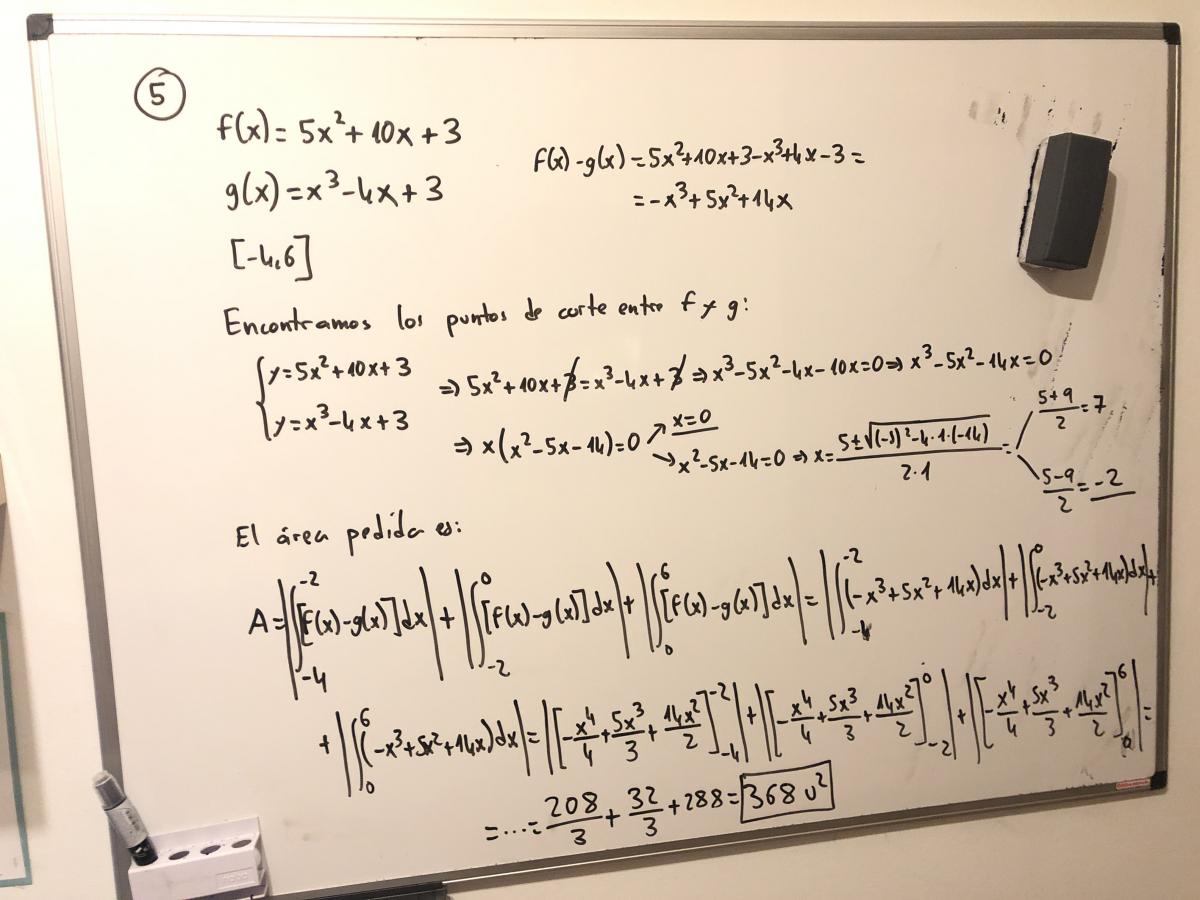 5
f(x) = 5x² + 10x + 3
g(x) = x³ - 4x + 3
f(x) - g(x) = 5x² + 10x + 3 - x³ + 4x - 3 =
= -x³ + 5x² + 14x
[-4,6]
Encontramos los puntos de corte entre f y g:
{ y = 5x² + 10x + 3
{ y = x³ - 4x + 3
⇒ 5x² + 10x + 3 = x³ - 4x + 3 ⇒ x³ - 5x² - 4x - 10x = 0 ⇒ x³ - 5x² - 14x = 0
⇒ x(x² - 5x - 14) = 0 ↗ x = 0
↘ x² - 5x - 14 = 0 ⇒ x = (5 ± √((-5)² - 4·1·(-14))) / (2·1) =
(5+9)/2 = 7
(5-9)/2 = -2
El área pedida es:
A = |∫₋₄⁻² [f(x) - g(x)] dx| + |∫₋₂⁰ [f(x) - g(x)] dx| + |∫₀⁶ [f(x) - g(x)] dx| = |∫₋₄⁻² (-x³ + 5x² + 14x) dx| + |∫₋₂⁰ (-x³ + 5x² + 14x) dx| +
+ |∫₀⁶ (-x³ + 5x² + 14x) dx| = |[-x⁴/4 + 5x³/3 + 14x²/2]₋₄⁻²| + |[-x⁴/4 + 5x³/3 + 14x²/2]₋₂⁰| + |[-x⁴/4 + 5x³/3 + 14x²/2]₀⁶| =
= ... = 208/3 + 32/3 + 288 = 368 u²